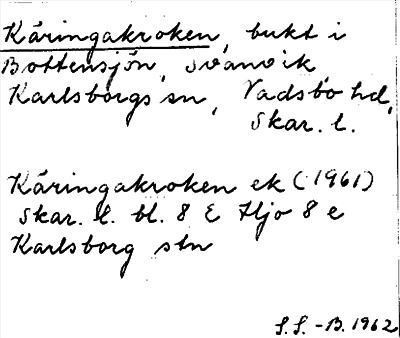 Käringakroken, bukt i
Bottensjön, Svanvik,
Karlsborgs sn, Vadsbo hd,
Skar. l.
Käringakroken ek (1961)
Skar. l. bl. 8 E Hjo 8 e
Karlsborg stn
S.S. -B. 1962